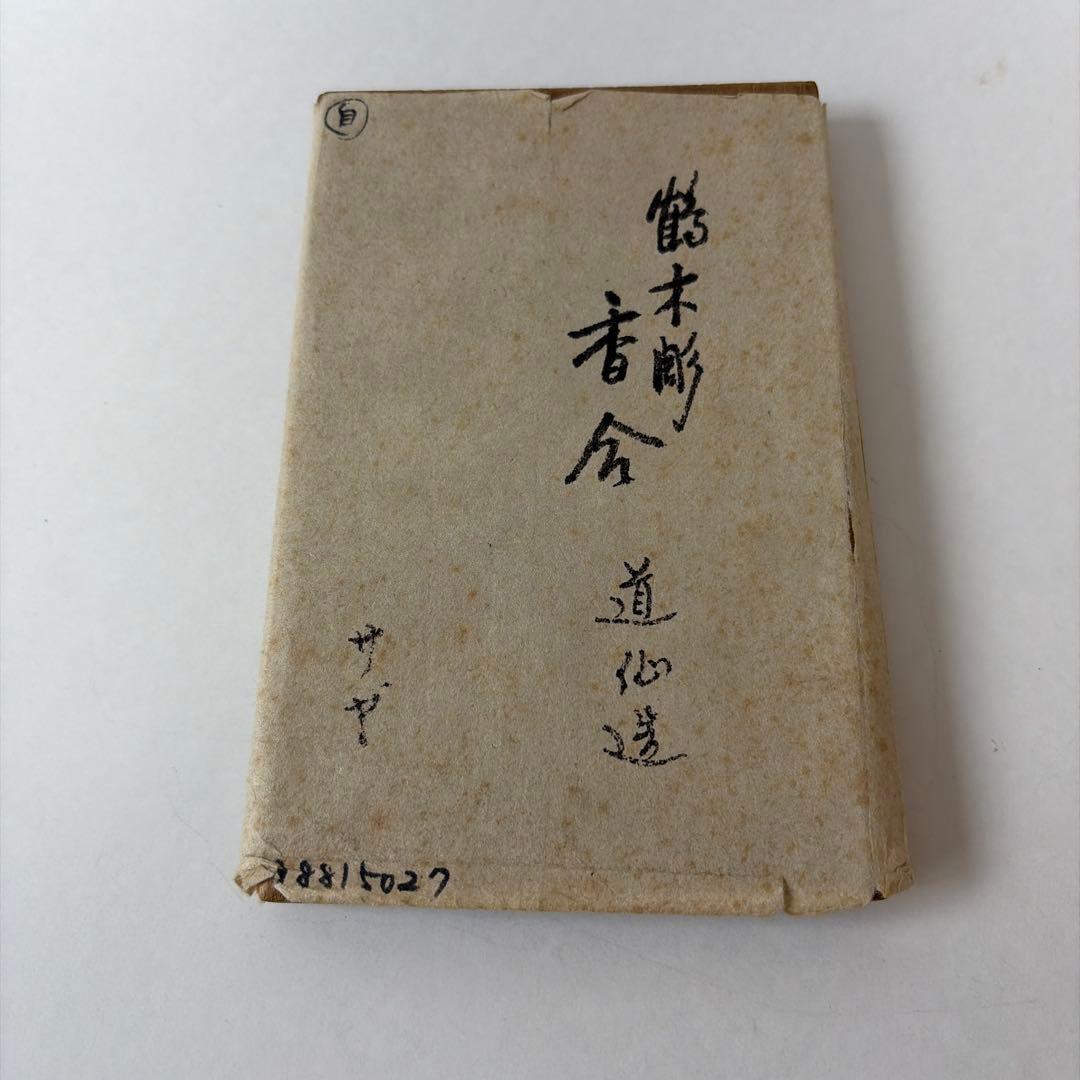 自
鶴木彫
香合
道仙造
サヤ
38815027